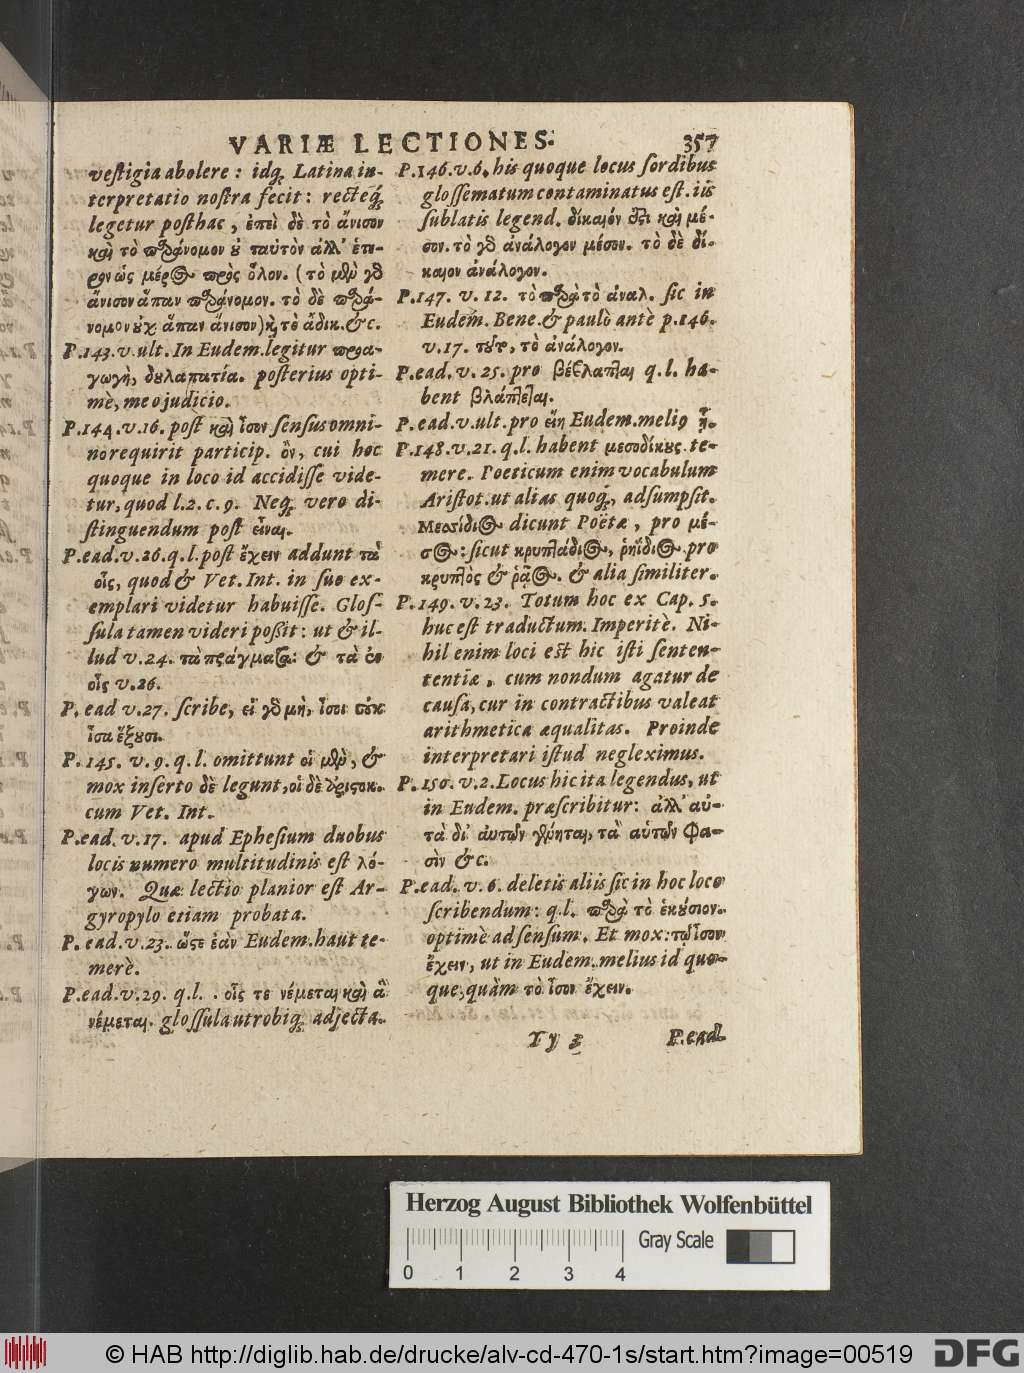 VARIÆ LECTIONES. 357
vestigia abolere: idq́; Latina in-
terpretatio nostra fecit: recteq́;
legetur posthac, ἐπεὶ δὲ τὸ ἄνισον
καὶ τὸ παράνομον οὐ ταὐτὸν ἀλλ' ἕτε-
ρον ὡς μέρος πρὸς ὅλον. (τὸ μὲν γὸ
ἄνισον ἅπαν παράνομον. τὸ δὲ παρά-
νομον οὐχ ἅπαν ἄνισον) καὶ τὸ ἄδικ. &c.
P. 143. v. ult. In Eudem. legitur προα-
γωγὴ, δουλαπατία. posterius opti-
mè, meo judicio.
P. 144. v. 16. post καὶ ἶσον sensus omni-
no requirit particip. ὂν, cui hoc
quoque in loco id accidisse vide-
tur, quod l. 2. c. 9. Neq; vero di-
stinguendum post εἶναι.
P. ead. v. 26. q. l. post ἔχειν addunt τὰ
οἷς, quod & Vet. Int. in suo ex-
emplari videtur habuisse. Glos-
sula tamen videri poßit: ut & il-
lud v. 24. τὰ πράγματα: & τὰ ἐν
οἷς v. 26.
P. ead v. 27. scribe, εἰ γὸ μὴ, ἶσοι οὐκ
ἶσα ἕξουσι.
P. 145. v. 9. q. l. omittunt οἱ μὲν, &
mox inserto δὲ legunt, οἱ δὲ ἀριστοκ.
cum Vet. Int.
P. ead. v. 17. apud Ephesium duobus
locis numero multitudinis est λό-
γων. Quæ lectio planior est Ar-
gyropylo etiam probata.
P. ead. v. 23. ὥστε ἐὰν Eudem. haut te-
merè.
P. ead. v. 29. q. l. . οἷς τε νέμεται καὶ ἃ
νέμεται. glossula utrobiq; adjecta.
P. 146. v. 6. his quoque locus sordibus
glossematum contaminatus est. iis
sublatis legend. δίκαιόν ἐστι καὶ μέ-
σον. τὸ γὸ ἀνάλογον μέσον. τὸ δὲ δί-
καιον ἀνάλογον.
P. 147. v. 12. τὸ παρὰ τὸ ἀναλ. sic in
Eudem. Bene. & paulò antè p. 146.
v. 17. τοῦτο, τὸ ἀνάλογον.
P. ead. v. 25. pro βέβλαπται q. l. ha-
bent βλάπτεται.
P. ead. v. ult. pro εἴη Eudem. melius ᾖ.
P. 148. v. 21. q. l. habent μεσοδίκους te-
mere. Poeticum enim vocabulum
Aristot. ut alias quoq́;, adsumpsit.
Μεσίδιος dicunt Poëtæ, pro μέ-
σος: sicut κρυπτάδιος, ῥηΐδιος. pro
κρυπτὸς & ῥᾷος. & alia similiter.
P. 149. v. 23. Totum hoc ex Cap. 5.
huc est traductum. Imperitè. Ni-
hil enim loci est hic isti senten-
tentiæ, cum nondum agatur de
causa, cur in contractibus valeat
arithmetica æqualitas. Proinde
interpretari istud negleximus.
P. 150. v. 2. Locus hic ita legendus, ut
in Eudem. præscribitur: ἀλλ' αὐ-
τὰ δι' αὐτῶν γένηται, τὰ αὑτῶν φα-
σὶν &c.
P. ead. v. 6. deletis aliis sic in hoc loco
scribendum: q. l. παρὰ τὸ ἑκούσιον.
optimè ad sensum. Et mox: τῷ ἶσον
ἔχειν, ut in Eudem. melius id quo-
que, quàm τὸ ἶσον ἔχειν.
Yy 3 P. ead.
Herzog August Bibliothek Wolfenbüttel
0 1 2 3 4
Gray Scale
© HAB http://diglib.hab.de/drucke/alv-cd-470-1s/start.htm?image=00519
DFG